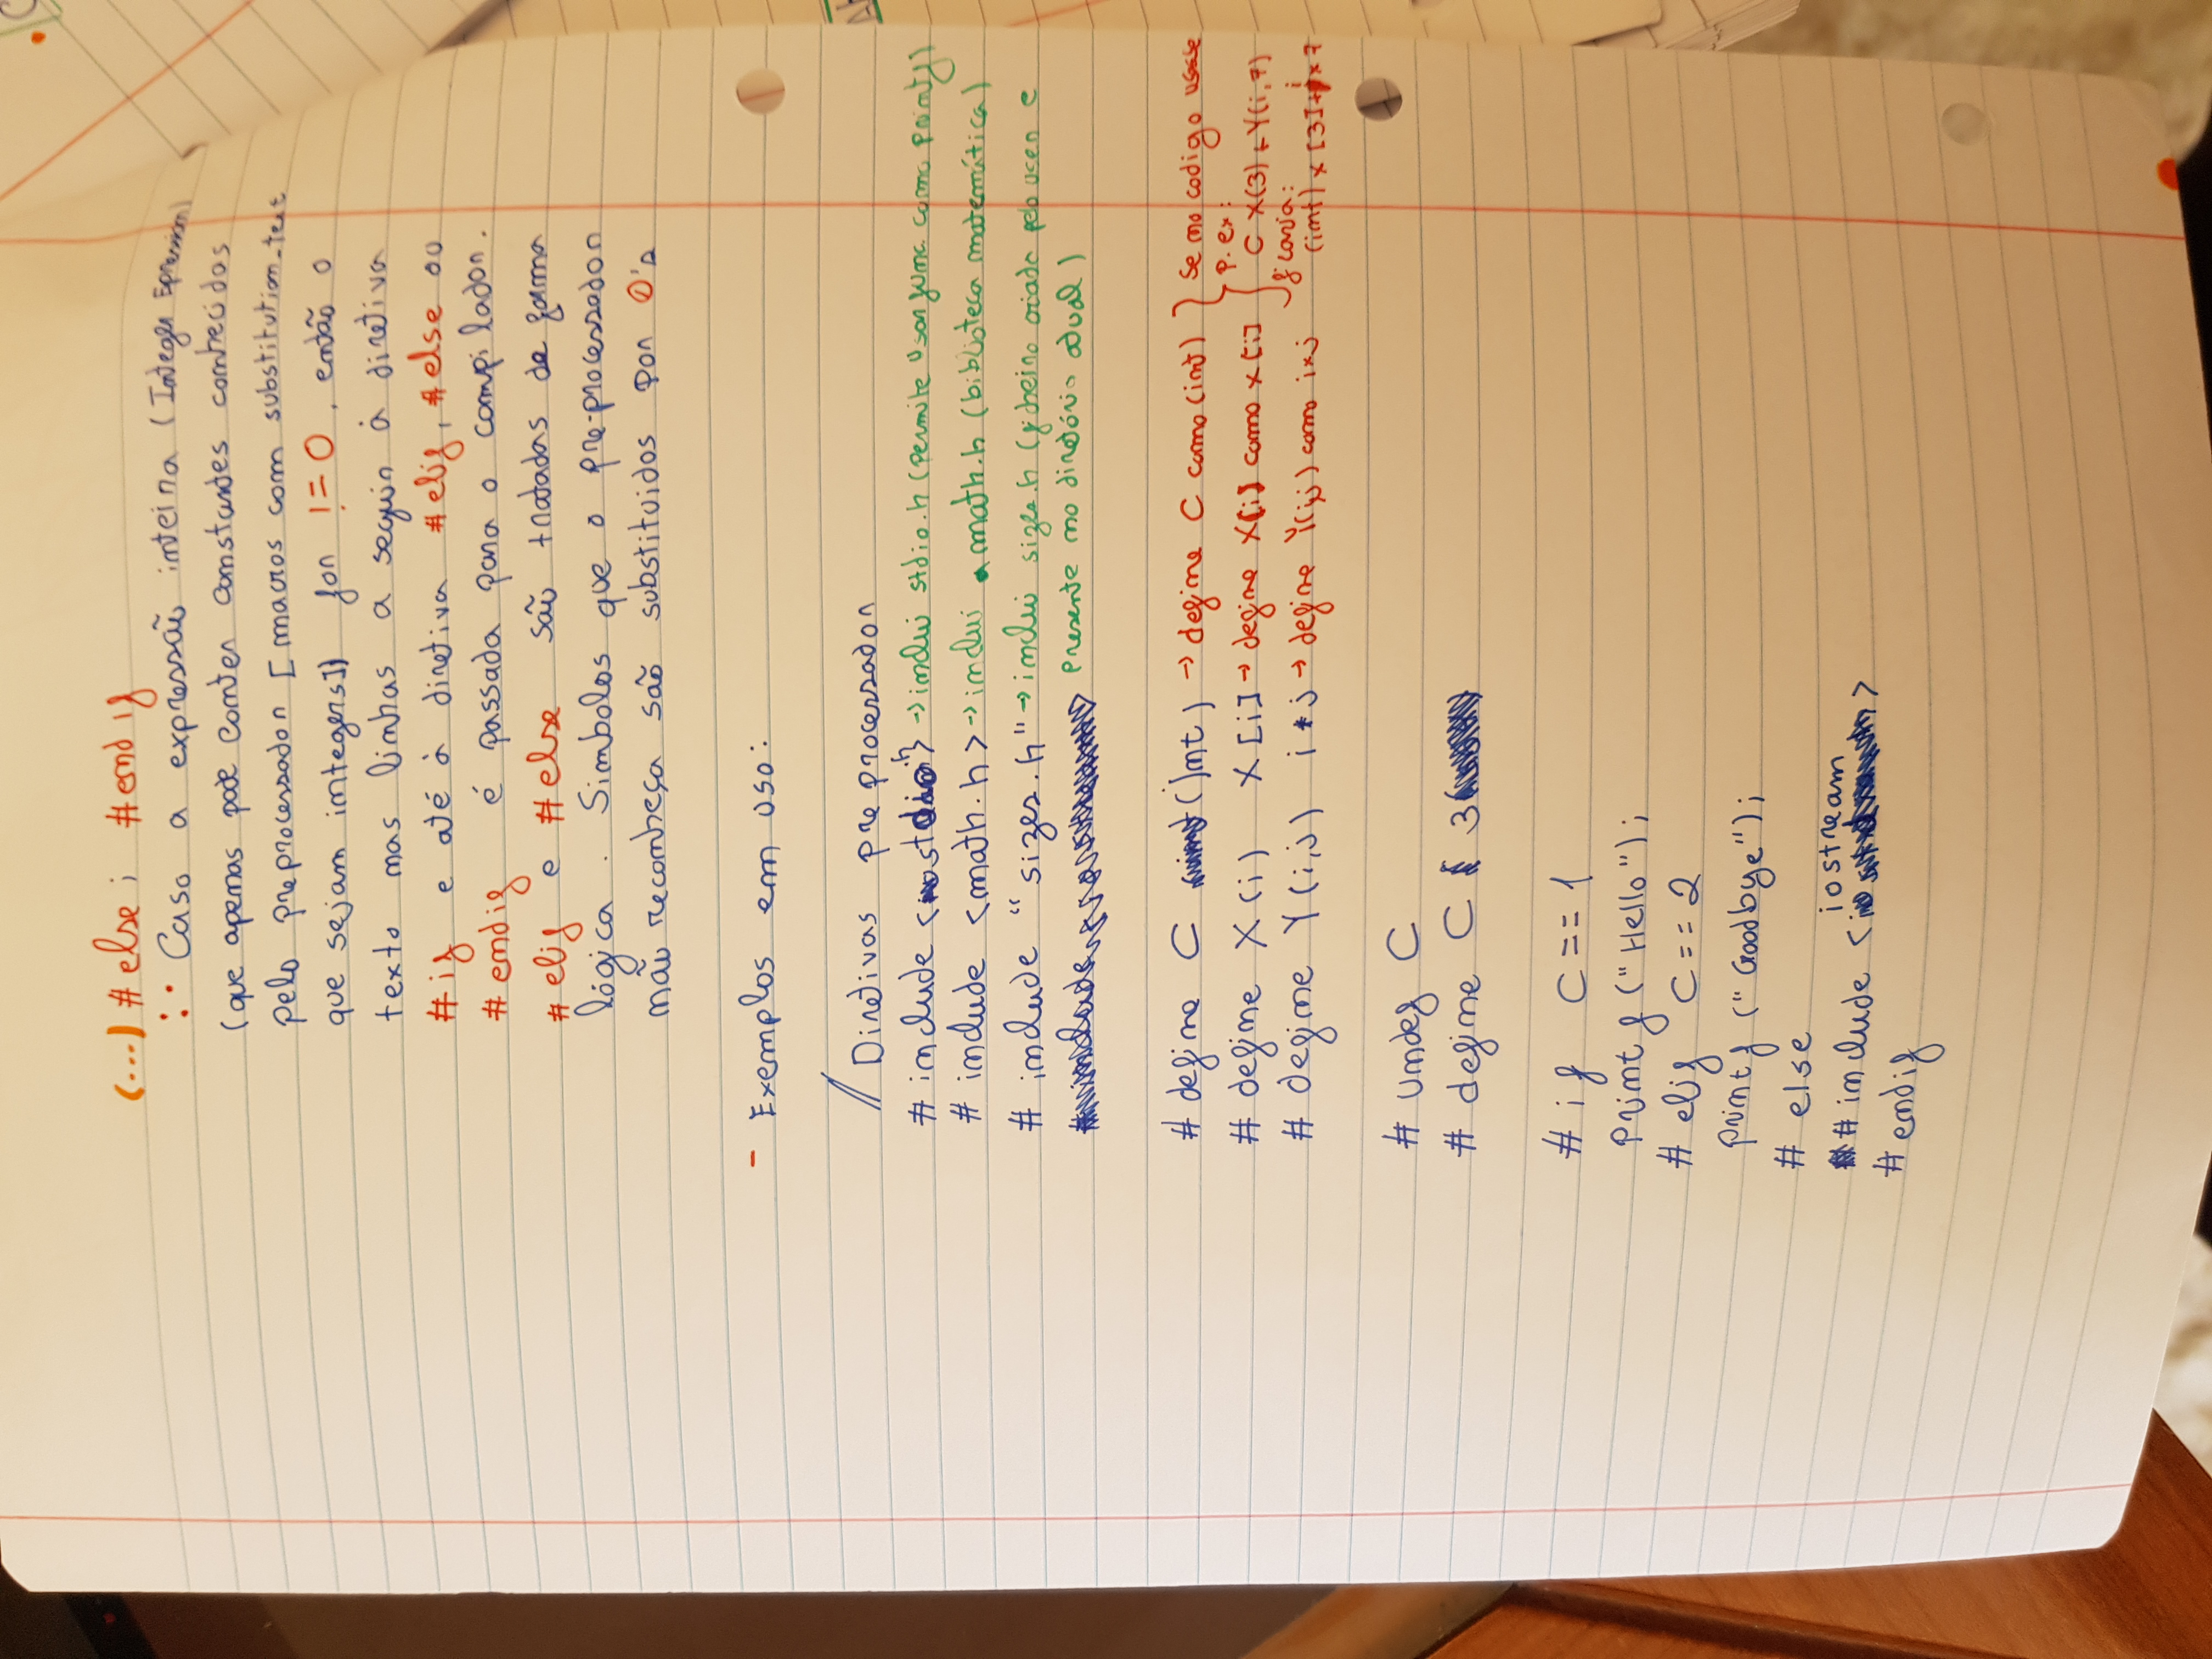 (...) #else ; #endif
Caso a expressão inteira (Integer Expression)
(que apenas pode conter constantes conhecidas
pelo preprocessador [macros com substitution_text
que sejam integers]) for != 0, então o
texto nas linhas a seguir à diretiva
#if e até à diretiva #elif, #else ou
#endif é passada para o compilador.
#elif e #else são tratadas de forma
lógica. Simbolos que o pre-processador
não reconheça são substituidos por 0's
- Exemplos em uso:
// Diretivas pre processador
# include <stdio.h> → inclui stdio.h (permite usar como printf)
# include <math.h> → inclui math.h (biblioteca matemática)
# include "sizes.h" → inclui sizes.h (ficheiro criado pelo user e
presente no diretório atual)
# define C (int) → define C como (int) } se no codigo usasse
p. ex:
# define X(i) X[i] → define X[i] como x[i] C X(3) + Y(i,7)
ficaria:
# define Y(i,j) i*j → define Y(i,j) como i×j (int) x [3]+i×7
# undef C
# define C 3
# if C == 1
printf ("Hello");
# elif C == 2
printf ("Goodbye");
# else
# include <iostream>
# endif